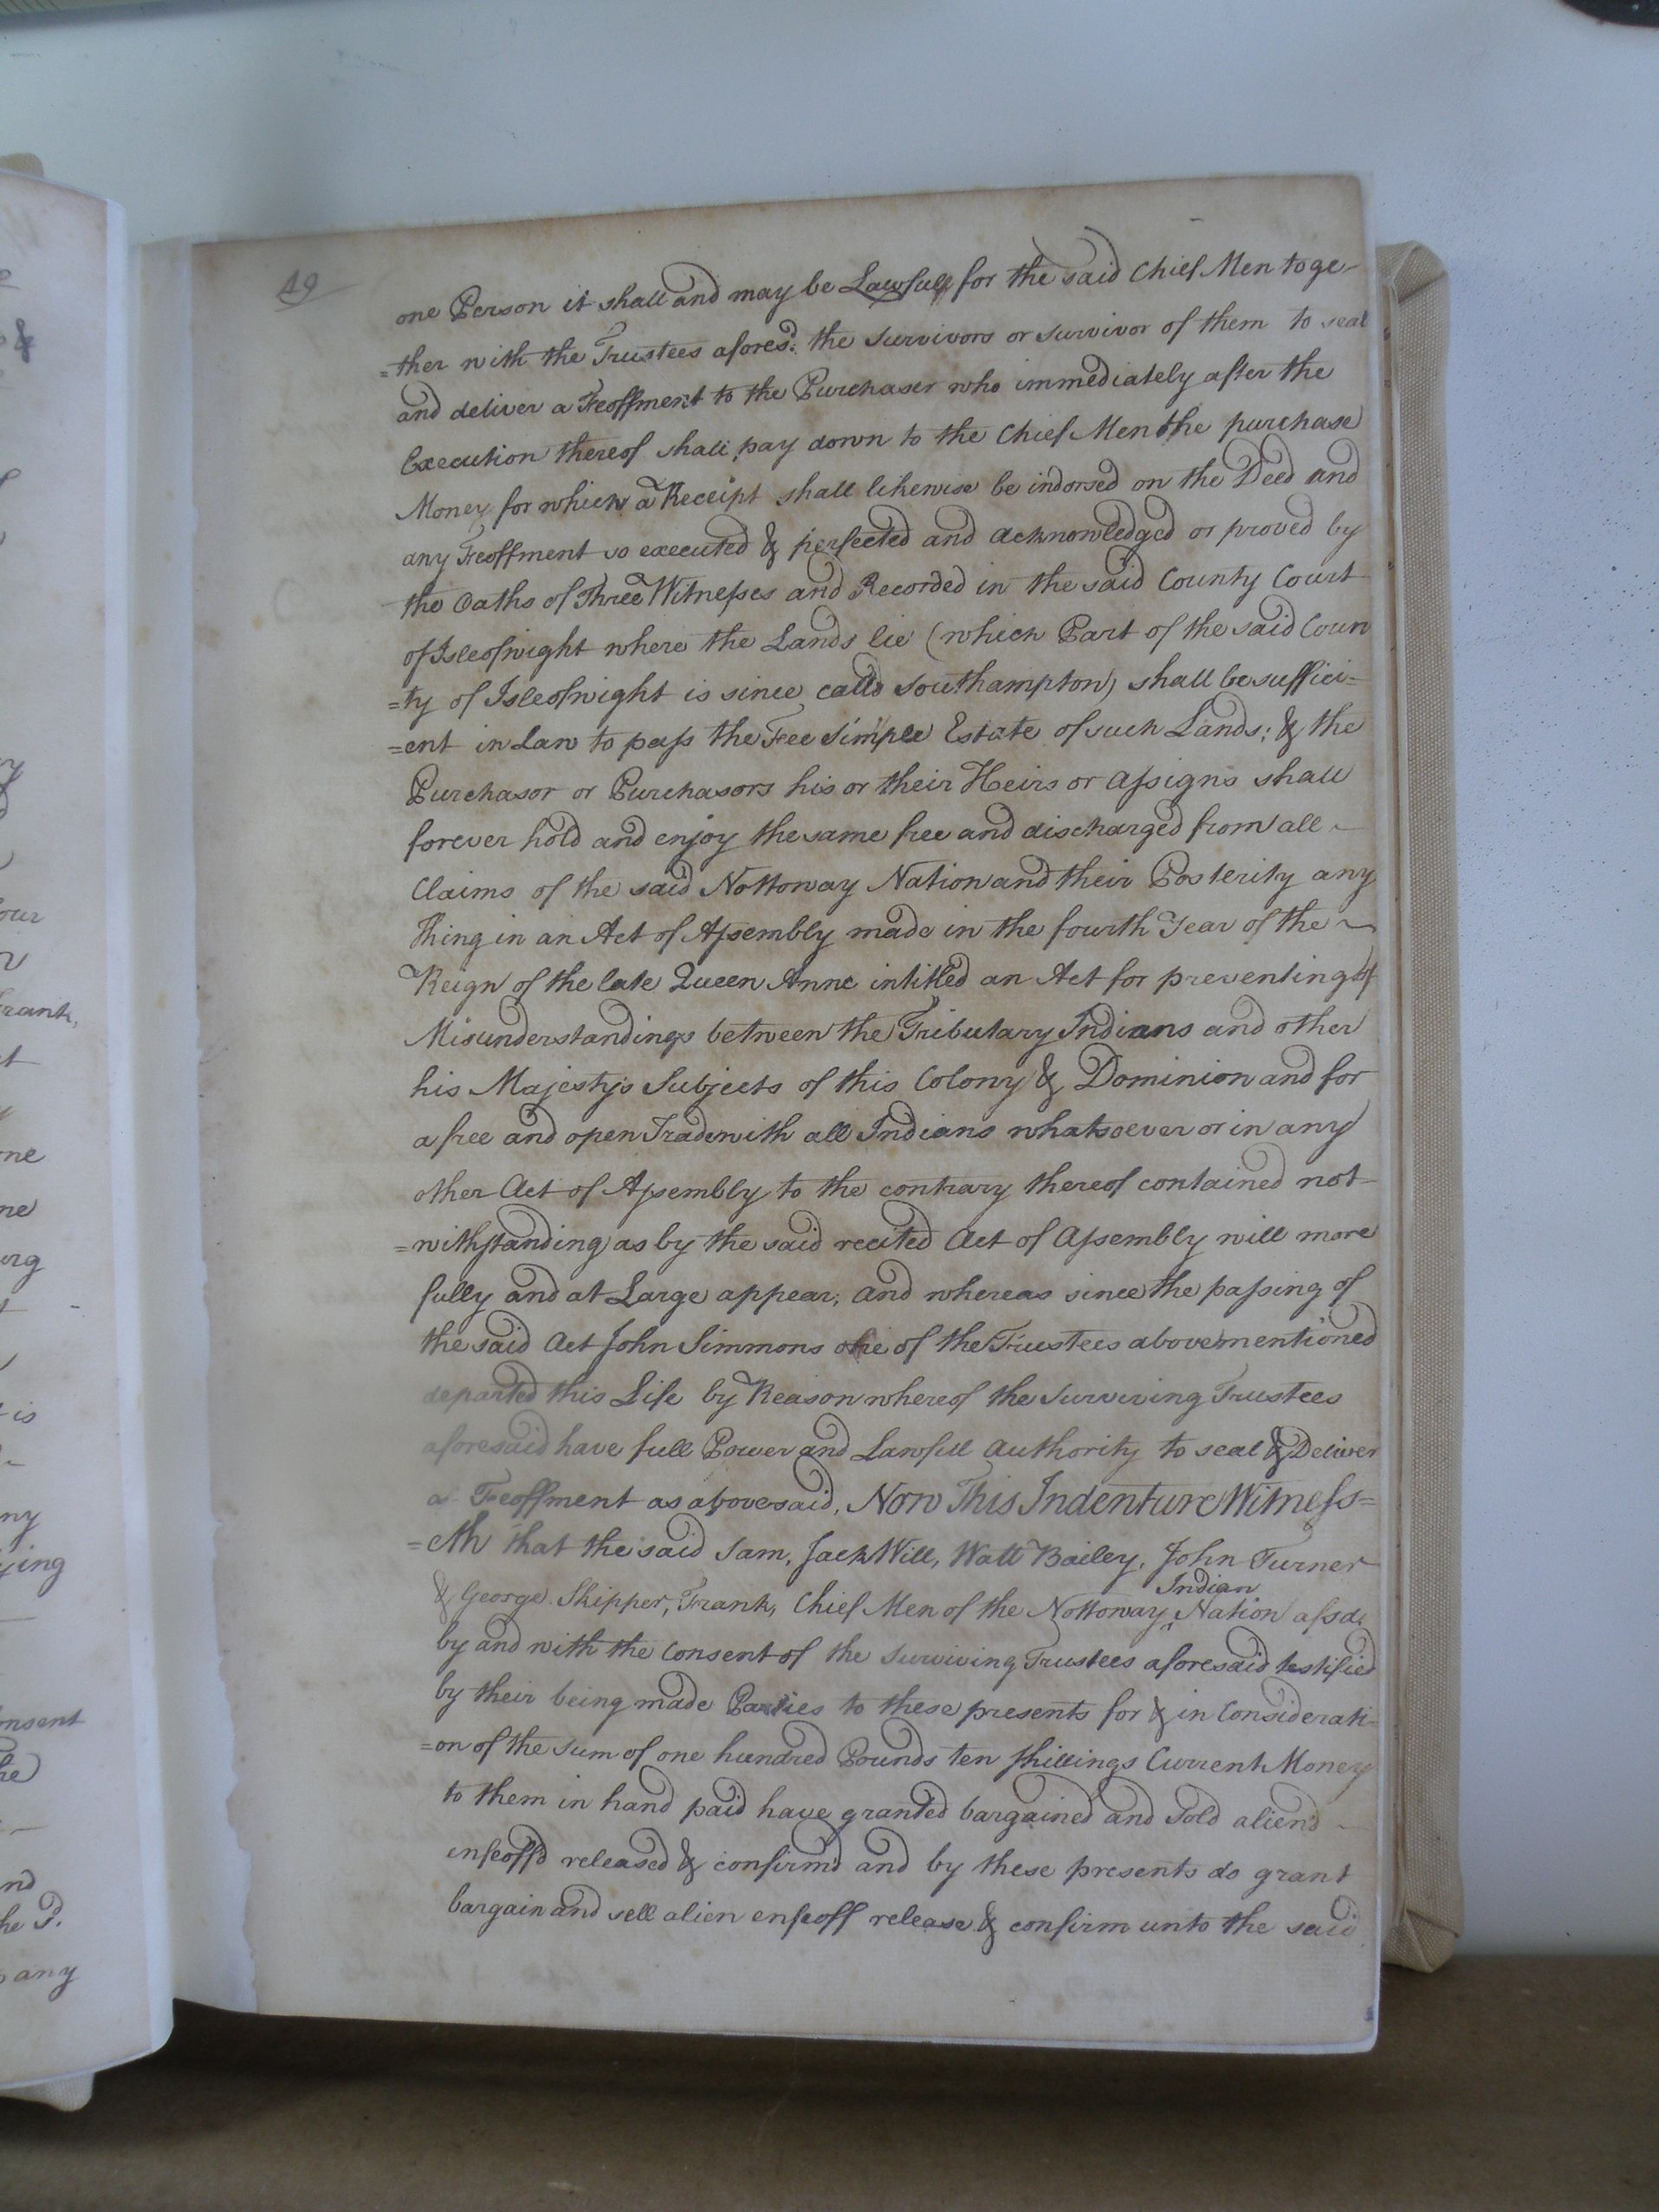 19
one Person it shall and may be Lawfull for the said Chief Men toge-
=ther with the Trustees afores.d the Survivors or Survivor of them to seal
and deliver a Feoffment to the Purchaser who immediately after the
Execution thereof shall pay down to the Chief Men the purchase
Money for which a Receipt shall likewise be indorsed on the Deed and
any Feoffment so executed & perfected and acknowledged or proved by
the Oaths of Three Witnesses and Recorded in the said County Court
of Isleofwight where the Lands lie (which Part of the said Coun
=ty of Isleofwight is since calld Southampton) shall be suffici=
=ent in Law to pass the Fee Simple Estate of such Lands; & the
Purchasor or Purchasors his or their Heirs or assigns shall
forever hold and enjoy the same free and discharged from all
Claims of the said Nottoway Nation and their Posterity any
Thing in an Act of Assembly made in the fourth Year of the
Reign of the late Queen Anne intitled an Act for preventing of
Misunderstandings between the Tributary Indians and other
his Majestys Subjects of this Colony & Dominion and for
a free and open Trade with all Indians whatsoever or in any
other Act of Assembly to the contrary thereof contained not
=withstanding as by the said recited Act of Assembly will more
fully and at Large appear; and whereas since the passing of
the said Act John Simmons one of the Trustees abovementioned
departed this Life by Reason whereof the Surviving Trustees
aforesaid have full Power and Lawfull authority to seal & Deliver
a Feoffment as abovesaid, Now This Indenture Witness=
=eth that the said Sam, Jack Will, Watt Bailey, John Turner
& George Skipper, Frank, Chief Men of the Nottoway Indian Nation afsd.
by and with the Consent of the Surviving Trustees aforesaid testified
by their being made Parties to these presents for & in Considerati-
=on of the Sum of one hundred Pounds ten shillings Current Money
to them in hand paid have granted bargained and Sold aliend
enfeoffd released & confirmd and by these presents do grant
bargain and sell alien enfeoff release & confirm unto the said